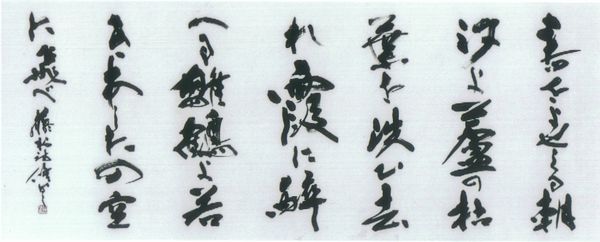 春をよせくる朝
汐よ蘆の枯
葉を洗ひ去
れ霞に醉
へる雛鶴よ若
きあしたの空
に飛べ